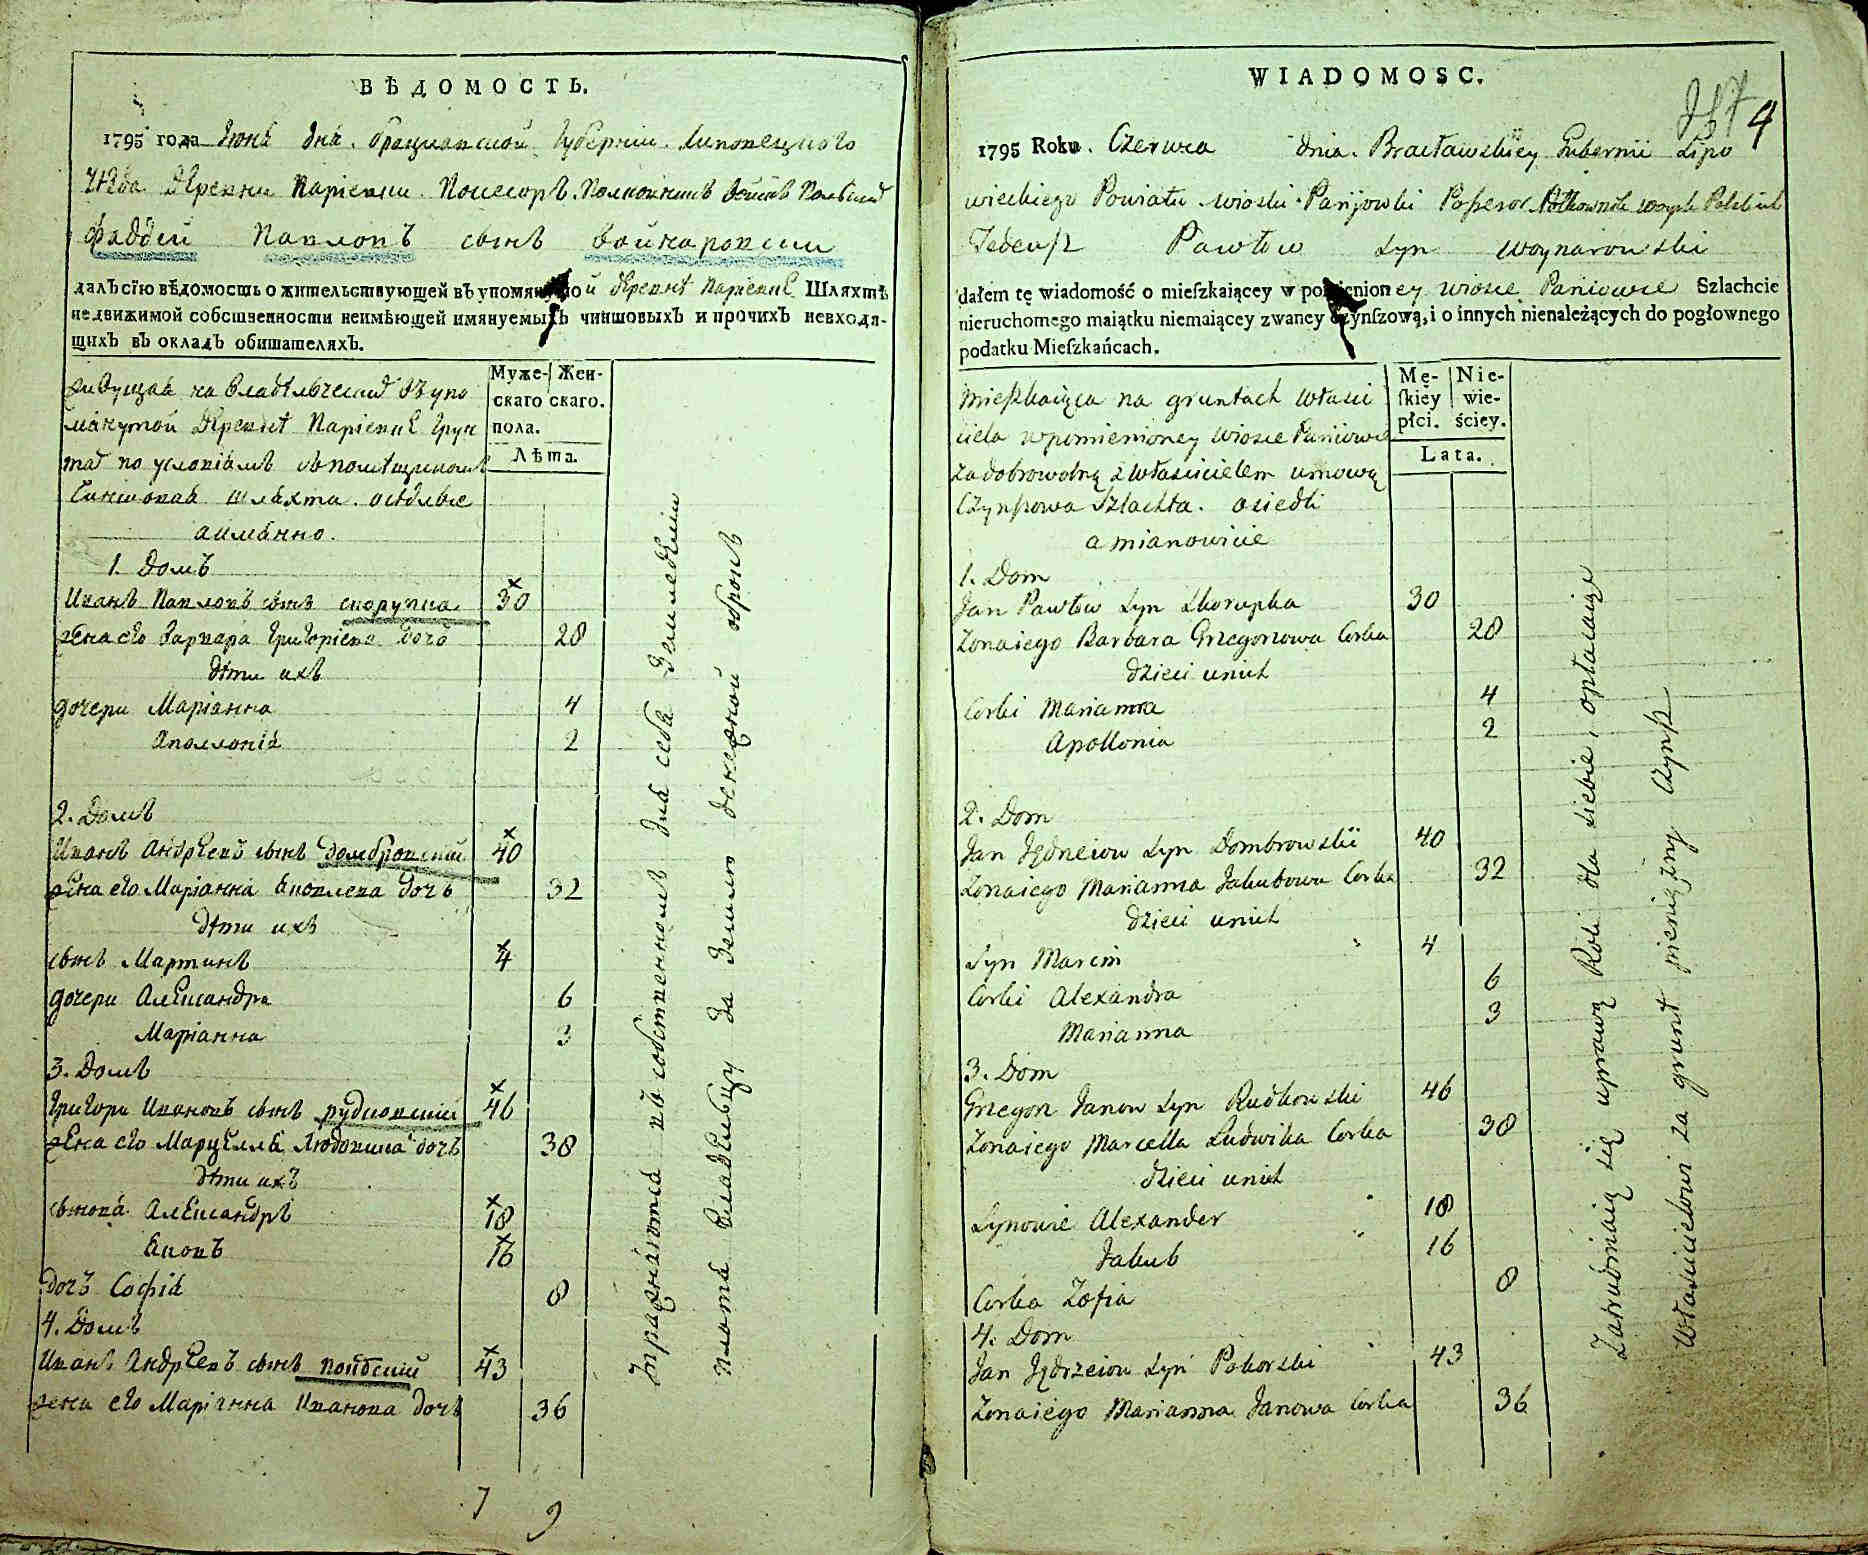 ВѢДОМОСТЬ.
1795 года Іюнѧ днѧ. Брацлавской Губерніи. Липовецкого
уѣзда деревни Паріевки. Посесоръ. Полковникъ войскъ Польскихъ
Фаддей Павловъ сынъ Войнаровскій
далъ сїю вѣдомость о жительствующей въ упомянутой деревнѣ Паріевкѣ Шляхтѣ
недвижимой собственности неимѣющей имянуемыхъ чиншовыхъ и прочихъ невходя-
щихъ въ окладъ обитателяхъ.
Муже- Жен-
скаго скаго.
пола.
Лѣта.
живущая на владѣльческихъ въ упо
мянутой деревнѣ Паріевкѣ грун
тахъ по условіямъ съ помѣщикомъ
чиншовая шляхта. осѣдлые
аимянно.
1. Домъ
Иванъ Павловъ сынъ скорупка 30
жена его Варвара Григоріева дочь 28
дѣти ихъ
дочери Маріанна 4
Аполлонія 2
2. Домъ
Иванъ Андреевъ сынъ домбровскій 40
жена его Маріанна Яковлева дочь 32
дѣти ихъ
сынъ Мартинъ 4
дочери Александра 6
Маріанна 3
3. Домъ
Григори Ивановъ сынъ рудковскій 46
жена его Марцелла Людовика дочь 38
дѣти ихъ
сыновя Александръ 18
Яковъ 16
дочь Софія 8
4. Домъ
Иванъ Андреевъ сынъ 43
жена его Маріанна Иванова дочь 36
7 9
Упражняются въ собственномъ для себя земледѣліи
платя владѣльцу за землю денежной оброкъ
WIADOMOSC.
4
1795 Roku. Czerwca dnia. Bracławskiey Gubernii Lipo
wieckiego Powiatu wioski Parijowki Possesor Półkownik woysk Polskich
Tedeusz Pawłow Syn Woynarowski
dałem tę wiadomość o mieſzkaiącey w pomienioney wiosce Pariowce Szlachcie
nieruchomego maiątku niemaiącey zwaney czynſzową, i o innych nienależących do pogłownego
podatku Mieſzkańcach.
Mę- Nie-
ſkiey wie-
płci. ściey.
Lata.
Mieszkaiąca na gruntach właści
ciela wpomienioney wiosce Pariowce
za dobrowolną z właścicielem umową
Czynszowa Szlachta. osiedli
a mianowicie
1. Dom
Jan Pawłow Syn Skorupka 30
Zonaiego Barbara Grzegorzowa Corka 28
dzieci unich
Corki Marianna 4
Apollonia 2
2. Dom
Jan Jędrzeiow Syn Dombrowskii 40
Zonaiego Marianna Jakubowa Corka 32
dzieci unich
Syn Marcin 4
Corki Alexandra 6
Marianna 3
3. Dom
Grzegorz Janow Syn Rudkowski 46
Zonaiego Marcella Ludwika Corka 38
dzieci unich
Synowie Alexander 18
Jakub 16
Corka Zofia 8
4. Dom
Jan Jędrzeiow Syn Poborski 43
Zonaiego Marianna Janowa Corka 36
Zatrudniaią się uprawą Roli dla siebie, opłacaiąc
Właścicielowi za grunt pieniężny Czynsz